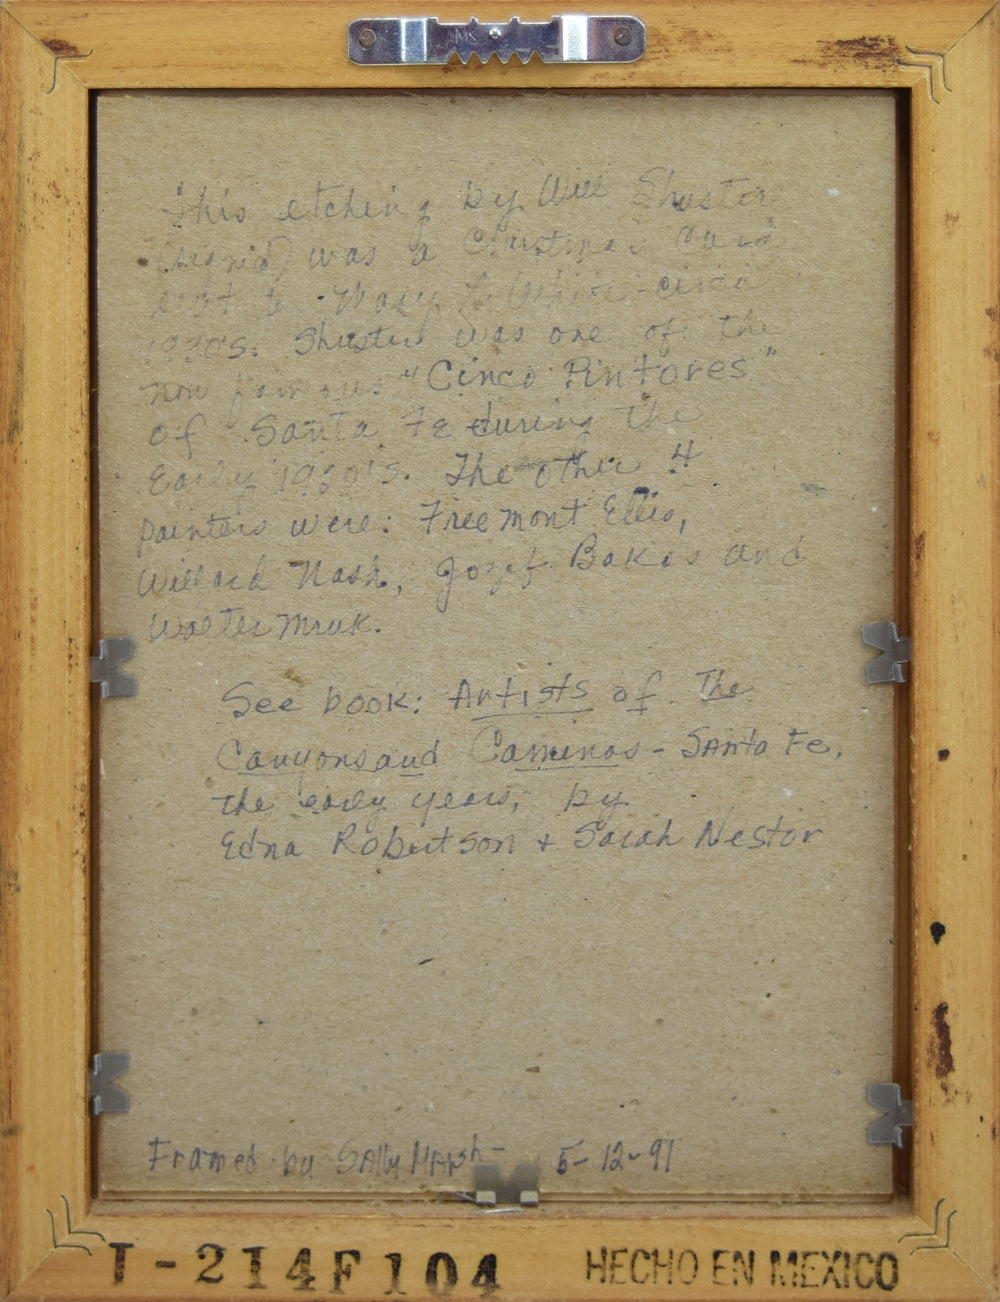 MS
This etching by Will Shuster
(signed) was a Christmas Card
sent to Mary L. White - circa
1930's. Shuster was one of the
now famous "Cinco Pintores"
of Santa Fe during the
Early 19 0's. The other 4
painters were: Freemont Ellis,
Willard Nash, Jozef Bakos and
Walter Mruk.
See book: Artists of The
Canyons and Caminos - Santa Fe,
the early years, by
Edna Robertson + Sarah Nestor
Framed by Sally Marsh - 5-12-91
I-214F104 HECHO EN MEXICO